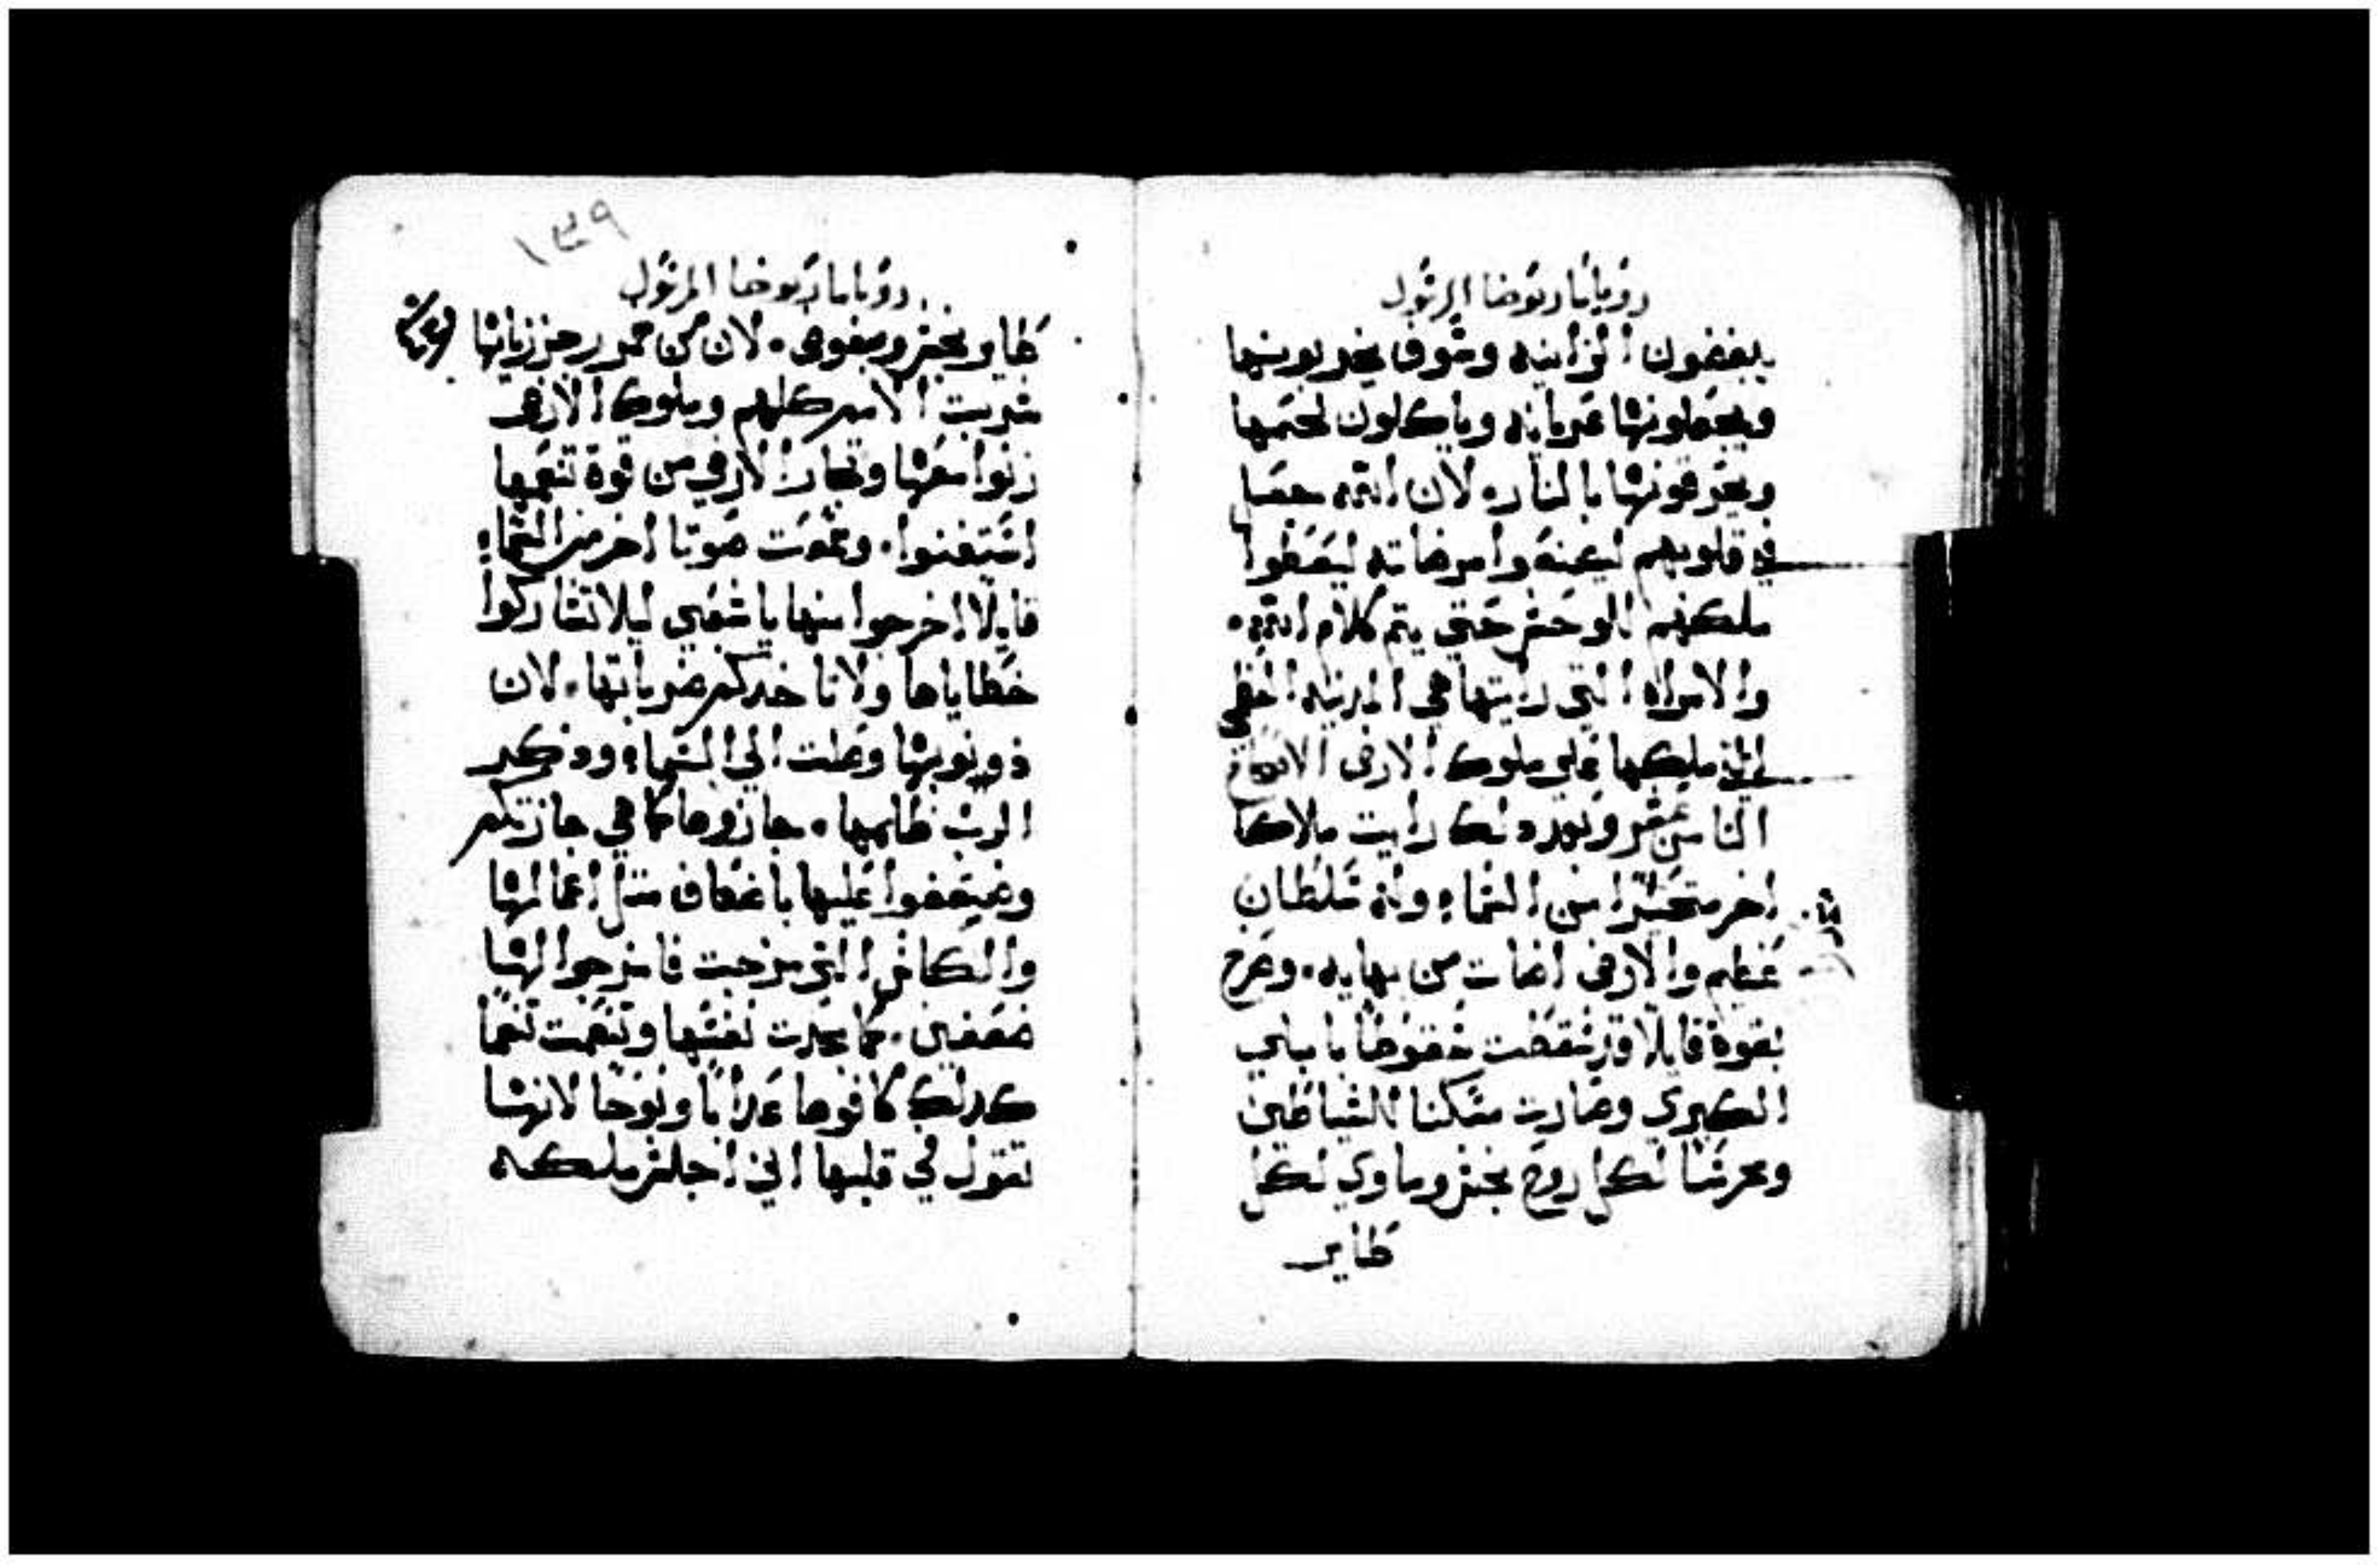 رويا مار يوحنا الرسول
يبغضون الزانيه وسوف يخربونها
ويجعلونها عريانه وياكلون لحمها
ويحرقونها بالنار، لان الله جعل
في قلوبهم ليصنعوا مرضاته ليعطوا
ملكهم للوحش حتي يتم كلام الله.
والامراه التي رايتها هي المدينه العظمي
التي ملكها علي ملوك الارض الاصحاح
الثامن عشر وبعد دلك رايت ملاكا
اخر منحدرا من السماء وله سلطان
عظيم والارض اضات من بهايه. وصرخ
بقوة قايلا قد سقطت سقوطا بابيلي
الكبري وصارت مسكنا للشياطين
وحرسا لكل روح نجس وماوي لكل
طاير
١٣٩
رويا مار يوحنا الرسول
طاير نجس ومبغوض. لان من خمر رجز زناها
شربت الامم كلهم وملوك الارض
زنوا معها وتجار الارض من قوة تنعمها
استغنوا. وسمعت صوتا اخر من السماء
قايلا اخرجوا منها يا شعبي ليلا تشاركوا
خطاياها ولا تاخدكم ضرباتها. لان
ذونوبها وصلت الي السماء ودكر
الرب ظلمها. جازوها كما هي جازتكم
وضعفوا عليها باضعاف متل اعمالها
والكاس التي مزجت فامزجوا لها
ضعفين. كما مجدت نفسها وتنعمت تنعما
كدلك كافوها عدابا ونوحا لانها
تقول في قلبها اني اجلس ملكه